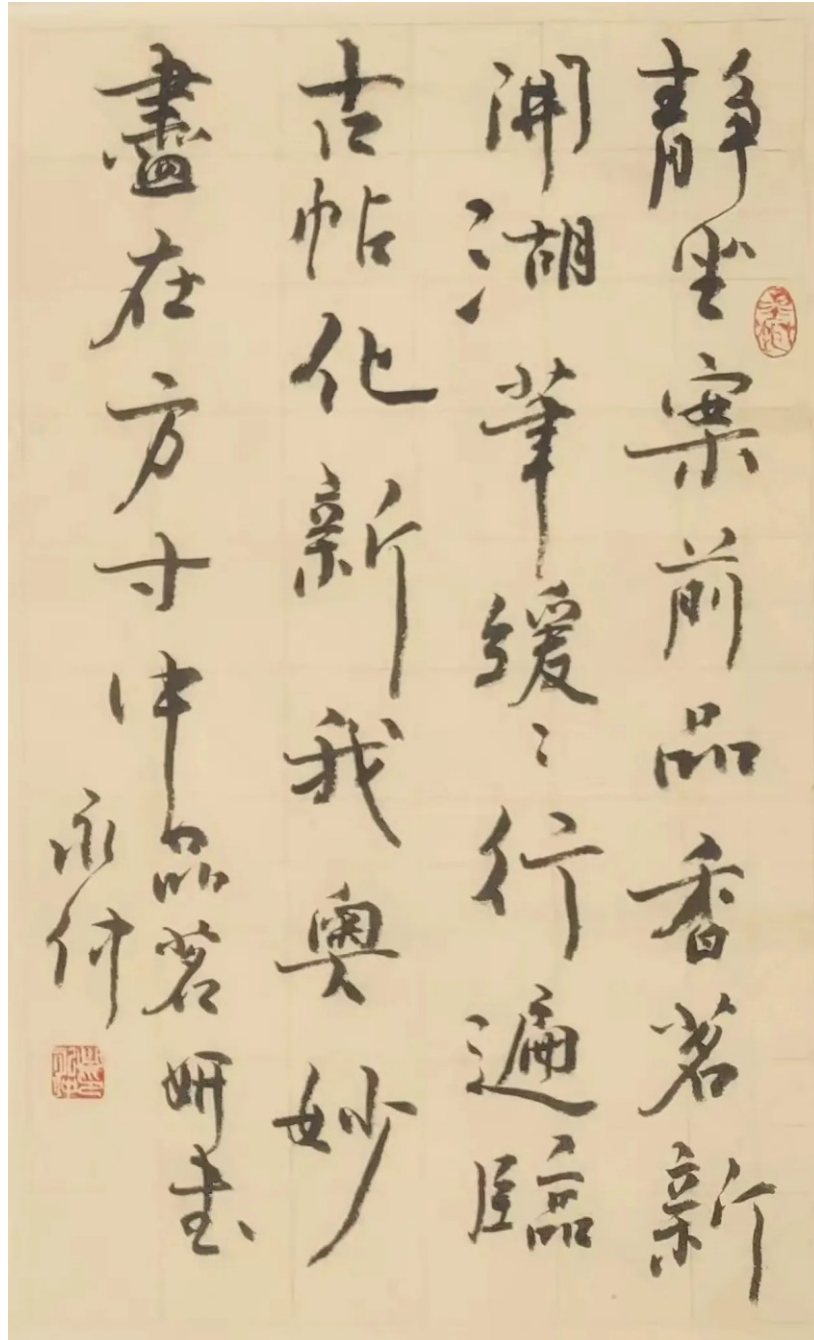 靜坐案前品香茗新
開湖筆緩〻行遍臨
古帖化新我奥妙
盡在方寸中
品茗妍書
永仲